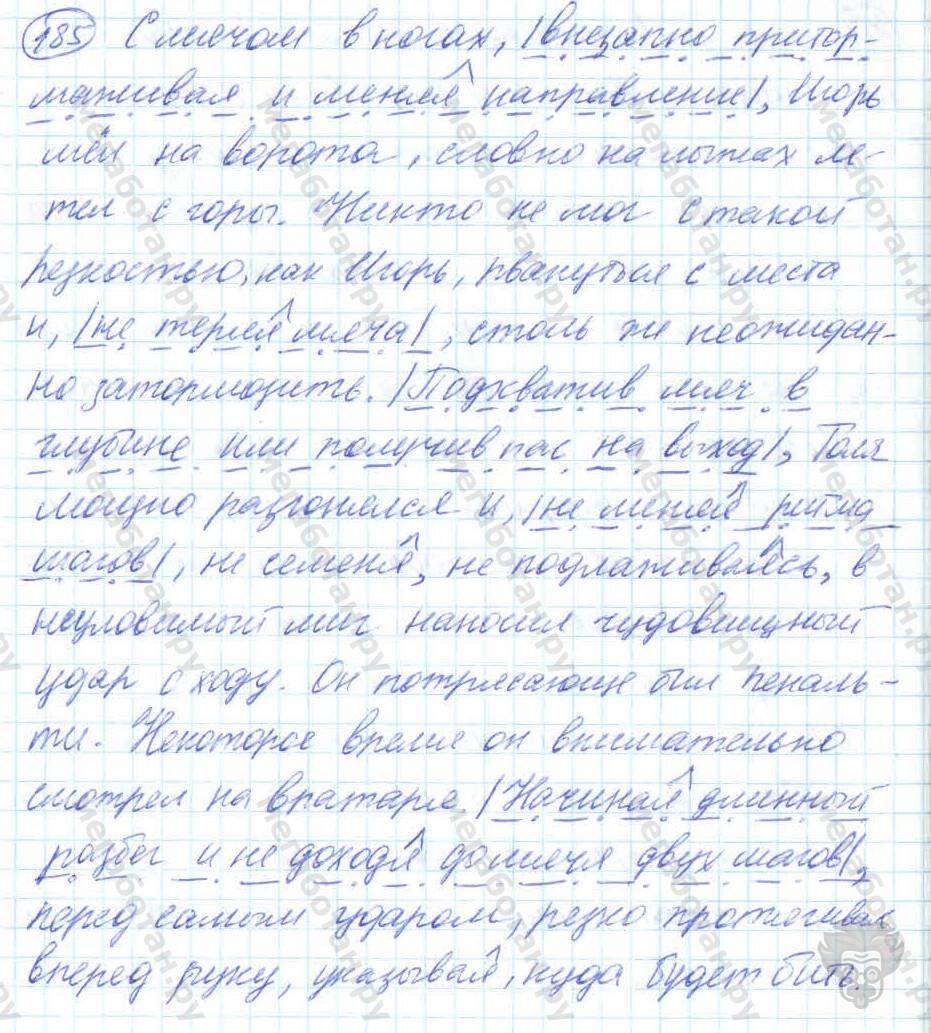 185 С мячом в ногах, |внезапно притор-
маживая и меняя направление|, Игорь
мел на ворота, словно на лыжах ле-
тел с горы. Никто не мог с такой
резкостью, как Игорь, рвануться с места
и, |не теряя мяча|, столь же неожидан-
но затормозить. |Подхватив мяч в
глубине или получив пас на выход|, Толя
мощно разгонялся и, |не меняя ритма
шагов|, не семеня, не подлаживаясь, в
неуловимый миг наносил чудовищный
удар с ходу. Он потрясающе бил пеналь-
ти. Некоторое время он внимательно
смотрел на вратаря. |Начиная длинный
разбег и не доходя до мяча двух шагов|,
перед самым ударом, резко протягивал
вперед руку, указывая, куда будет бить.
мегаботан.ру